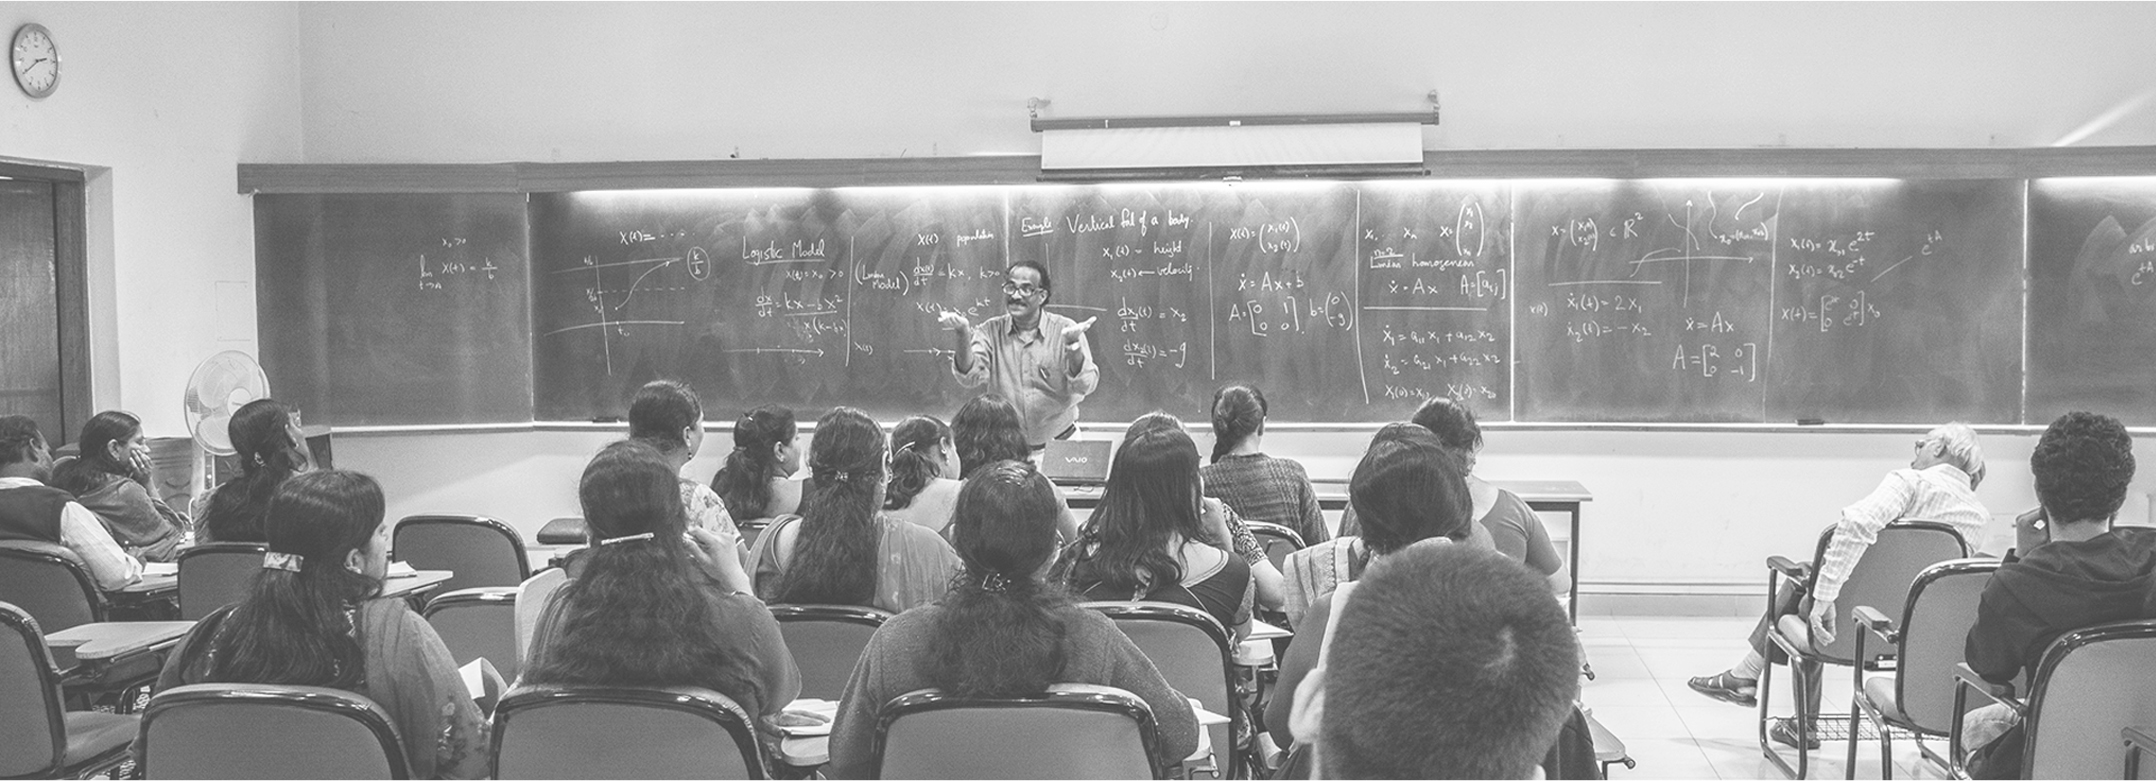 x₀ > 0
lim X(t) = k/b
t→∞
X(t) = ....
k/b
Logistic Model
x(t₀) = x₀ > 0
dx/dt = kx - bx²
X(t) population
(Linear Model) dx(t)/dt = kx, k>0
X(t)
Example Vertical fall of a body.
x₁(t) = height
x₂(t) ← velocity
dx₁(t)/dt = x₂
dx₂(t)/dt = -g
X(t) = (x₁(t) x₂(t))
ẋ = Ax + b
A = [0 1 0 0], b = (0 -g)
n=2
Linear homogeneous
ẋ = Ax A = [aᵢⱼ]
ẋ₁ = a₁₁ x₁ + a₁₂ x₂
ẋ₂ = a₂₁ x₁ + a₂₂ x₂
∈ ℝ²
ẋ₁(t) = 2x₁
ẋ₂(t) = -x₂
ẋ = Ax
A = [2 0 0 -1]
x₁(t) = x₀₁ e^2t
x₂(t) = x₀₂ e^-t
e^tA
VAIO